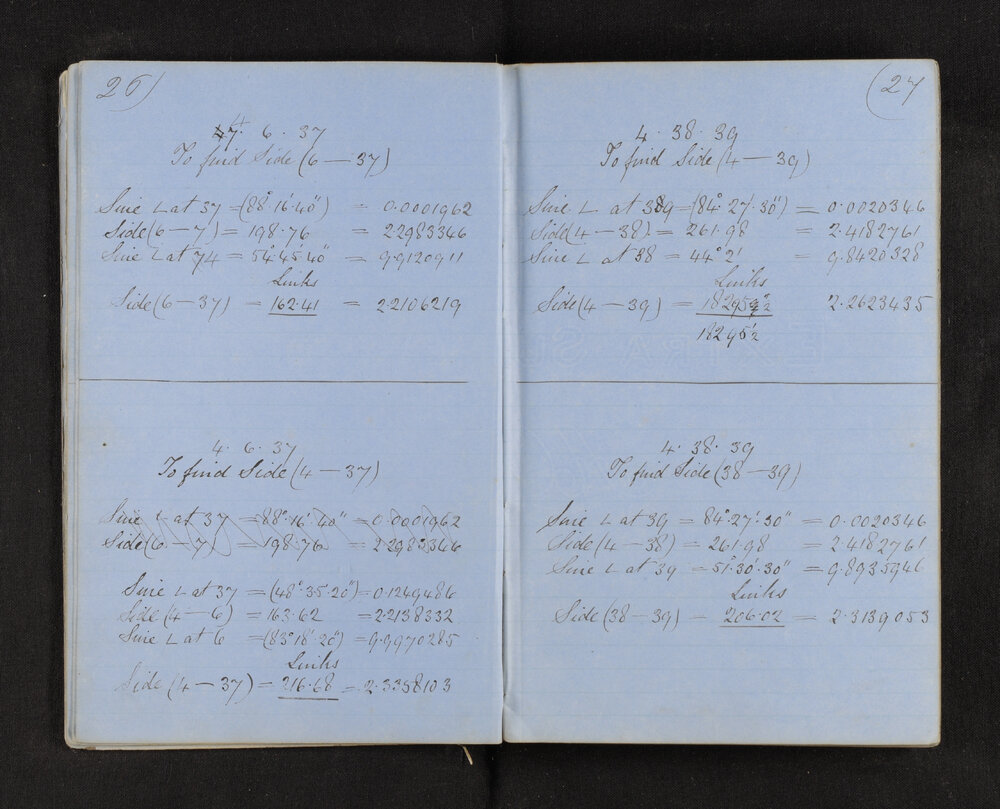 26)
47. 6. 37
To find Side (6—37)
Sine ∠ at 37 = (88° 16' 40") = 0.0001962
Side (6—7) = 198.76 = 2.2983346
Sine ∠ at 74 = 54° 45' 40" = 9.9120911
Links
Side (6—37) = 162.41 = 2.2106219
4. 6. 37
To find Side (4—37)
Sine ∠ at 37 = 88° 16' 40" = 0.0001962
Side (6—7) = 198.76 = 2.2983346
Sine ∠ at 37 = (48° 35' 20") = 0.1249486
Side (4—6) = 163.62 = 2.2138332
Sine ∠ at 6 = (83° 18' 20") = 9.9970285
Links
Side (4—37) = 216.68 = 2.3358103
(27
4. 38. 39
To find Side (4—39)
Sine ∠ at 389 = (84° 27' 30") = 0.0020346
Side (4—38) = 261.98 = 2.4182761
Sine ∠ at 38 = 44° 2' = 9.8420328
Links
Side (4—39) = 2.2623435
18295½
4. 38. 39
To find Side (38—39)
Sine ∠ at 39 = 84° 27' 30" = 0.0020346
Side (4—38) = 261.98 = 2.4182761
Sine ∠ at 39 = 51° 30' 30" = 9.8935946
Links
Side (38—39) — 206.02 = 2.3139053